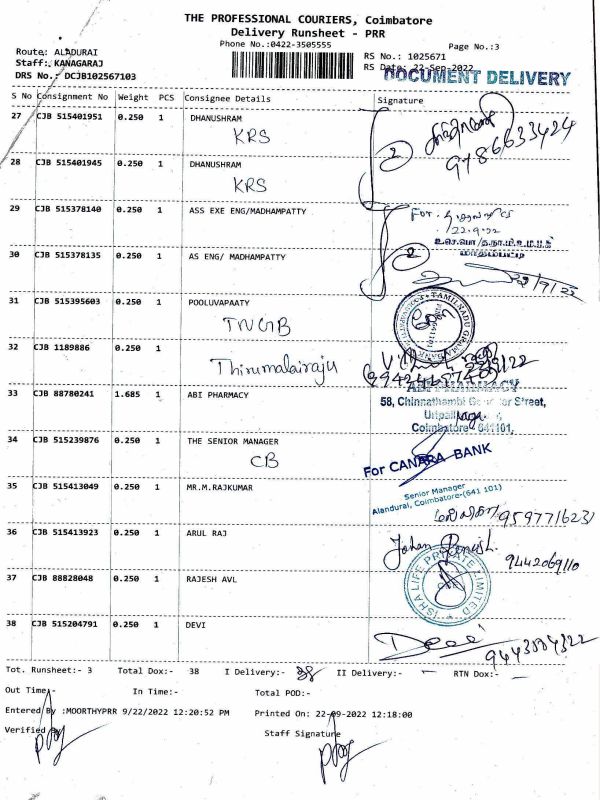 THE PROFESSIONAL COURIERS, Coimbatore
Delivery Runsheet - PRR
Phone No.:0422-3505555
Page No.:3
Route: ALADURAI
RS No.: 1025671
Staff: KANAGARAJ
RS Date: 22-Sep-2022
DRS No.: DCJB102567103
DOCUMENT DELIVERY
S No Consignment No Weight PCS Consignee Details Signature
27 CJB 515401951 0.250 1 DHANUSHRAM
KRS
2
28 CJB 515401945 0.250 1 DHANUSHRAM
KRS
29 CJB 515378140 0.250 1 ASS EXE ENG/MADHAMPATTY
For:
22.9.22
30 CJB 515378135 0.250 1 AS ENG/ MADHAMPATTY
2
31 CJB 515395603 0.250 1 POOLUVAPAATY
TNGB
TAMILNADU GRAMA BANK
32 CJB 1189886 0.250 1
Thirumalairaju
33 CJB 88780241 1.685 1 ABI PHARMACY
ABI PHARMACY
58, Chinnathambi Street,
Coimbatore 641101.
34 CJB 515239876 0.250 1 THE SENIOR MANAGER
CB
For CANARA BANK
Senior Manager
Alandurai, Coimbatore-(641 101)
35 CJB 515413049 0.250 1 MR.M.RAJKUMAR
9597716231
36 CJB 515413923 0.250 1 ARUL RAJ
9442069110
37 CJB 88828048 0.250 1 RAJESH AVL
ISHA LIFE PRIVATE LIMITED
38 CJB 515204791 0.250 1 DEVI
Devi
Tot. Runsheet:- 3 Total Dox:- 38 I Delivery:- 38 II Delivery:- — RTN Dox:- —
Out Time:- In Time:- Total POD:-
Entered By :MOORTHYPRR 9/22/2022 12:20:52 PM Printed On: 22-09-2022 12:18:00
Verified By
Staff Signature